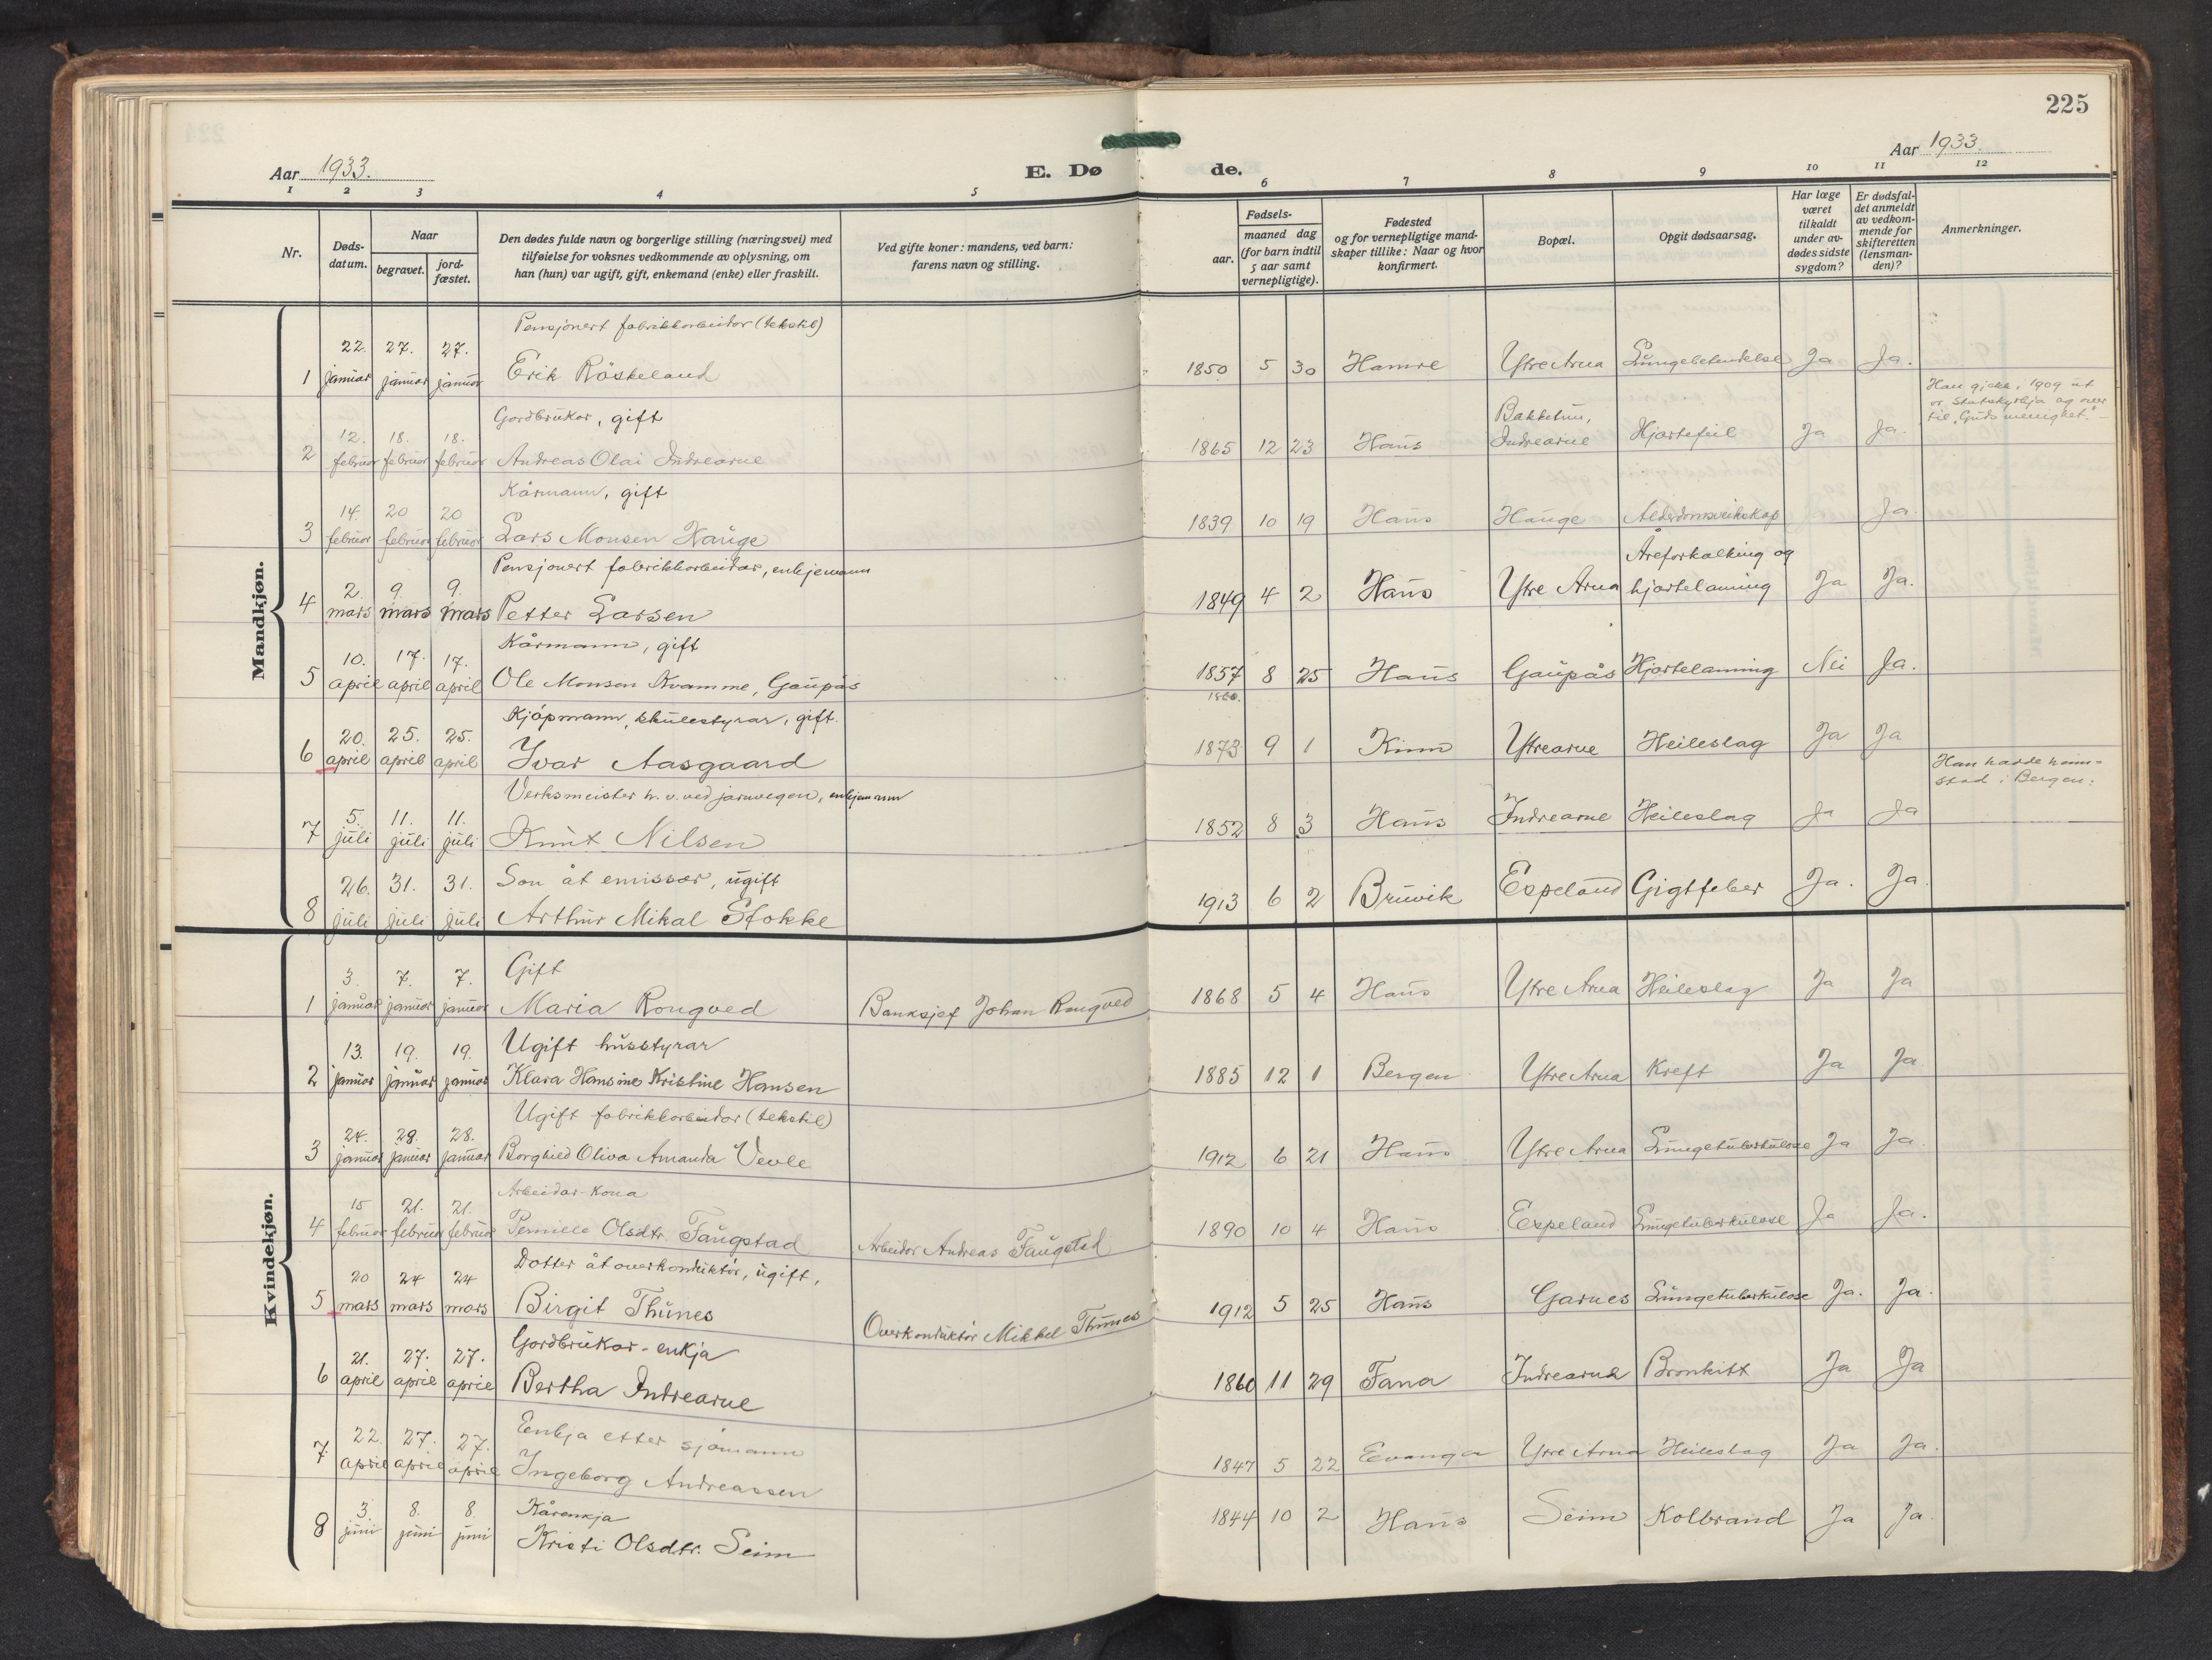 225
Aar 1933.
E. Døde.
Aar 1933.
1 2 3 4 5 6 7 8 9 10 11 12
Nr.
Døds-
datum.
Naar
begravet.
jord-
fæstet.
Den dødes fulde navn og borgerlige stilling (næringsvei) med
tilføielse for voksnes vedkommende av oplysning, om
han (hun) var ugift, gift, enkemand (enke) eller fraskilt.
Ved gifte koner: mandens, ved barn:
farens navn og stilling.
Fødsels-
aar.
maaned dag
(for barn indtil
5 aar samt
vernepligtige).
Fødested
og for vernepligtige mand-
skaper tillike: Naar og hvor
konfirmert.
Bopæl.
Opgit dødsaarsag.
Har læge
været
tilkaldt
under av-
dødes sidste
sygdom?
Er dødsfal-
det anmeldt
av vedkom-
mende for
skifteretten
(lensman-
den)?
Anmerkninger.
Mandkjøn.
Pensjonert fabrikkarbeidar (tekstil)
1 22. januar 27. januar 27. januar Erik Röskeland 1850 5 30 Hamre Ytre Arna Lungebetendelse Ja Ja.
Gardbrukar, gift
2 12. februar 18. februar 18. februar Andreas Olai Indrearne 1865 12 23 Haus Bakketun, Indrearne Hjartefeil Ja Ja.
Han gjekk i 1909 ut
or statskyrkja og over
til "Guds menighet".
Kårmann, gift
3 14. februar 20 februar 20 februar Lars Monsen Hauge 1839 10 19 Haus Hauge Alderdomsveikskap Ja.
Pensjonert fabrikkarbeidar, enkjemann
4 2. mars 9. mars 9. mars Petter Larsen 1849 4 2 Haus Ytre Arna Åreforkalking og hjartelaming Ja Ja.
Kårmann, gift
5 10. april 17. april 17. april Ole Monsen Kvamme, Gaupås 1857 8 25 Haus Gaupås Hjartelamming Nei Ja.
Kjöpmann, skulestyrar, gift.
6 20. april 25. april 25. april Ivar Aasgaard 1873 9 1 Kinn Ytrearne Heileslag Ja Ja
Han hadde heim-
stad i Bergen.
Verksmeister h. v. ved jarnvegen, enkjemann
7 5. juli 11. juli 11. juli Knut Nilsen 1852 8 3 Haus Indrearne Heileslag Ja Ja
Son åt emissær, ugift
8 26. juli 31. juli 31. juli Arthur Mikal Stokke 1913 6 2 Bruvik Espeland Gigtfeber Ja. Ja
Kvindekjøn.
Gift
1 3. januar 7. januar 7. januar Maria Rongved Banksjef Johan Rongved 1868 5 4 Haus Ytre Arna Heileslag Ja Ja
Ugift husstyrar
2 13. januar 19. januar 19. januar Klara Hansine Kristine Hansen 1885 12 1 Bergen Ytre Arna Kreft Ja Ja
Ugift fabrikkarbeidar (tekstil)
3 24. januar 28. januar 28. januar Borghild Oliva Amanda Vevle 1912 6 21 Haus Ytre Arna Lungetuberkulose Ja Ja.
Arbeidar-kona
4 15 februar 21. februar 21. februar Pernille Olsdtr. Faugstad Arbeidar Andreas Faugstad 1890 10 4 Haus Espeland Lungetuberkulose Ja Ja.
Dotter åt overkonduktör, ugift,
5 20 mars 24 mars 24 mars Birgit Thunes Overkonduktör Mikkel Thunes 1912 5 25 Haus Garnes Lungetuberkulose Ja. Ja.
Gardbrukar-enkja
6 21. april 27. april 27. april Bertha Indrearne 1860 11 29 Fana Indrearne Bronkitt Ja Ja
Enkja etter sjömann
7. 22. april 27. april 27. april Ingeborg Andreassen 1847 5 22 Evanger Ytre Arna Heileslag Ja Ja.
Kårenkja
8 3. juni 8. juni 8. juni Kristi Olsdtr. Seim 1844 10 2 Haus Seim Kolbrand Ja Ja.